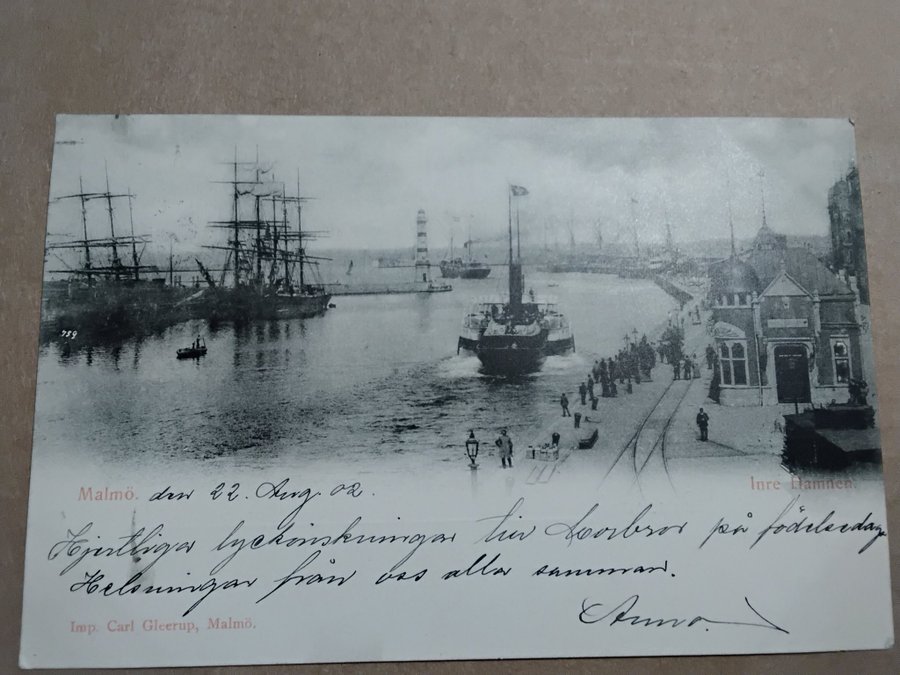 739
Malmö. den 22. Aug. 02.
Inre Hamnen.
Hjertliga lyckönskningar till Morbror på födelsedagen
Helsningar från oss alla samman.
Anna.
Imp. Carl Gleerup, Malmö.